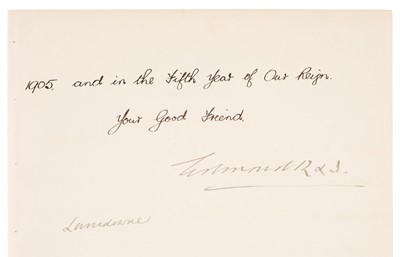 1905, and in the Fifth Year of Our Reign.
Your Good Friend.
Edward R & I.
Lansdowne